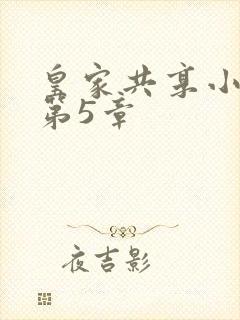 皇家共享小
第5章
夜吉影